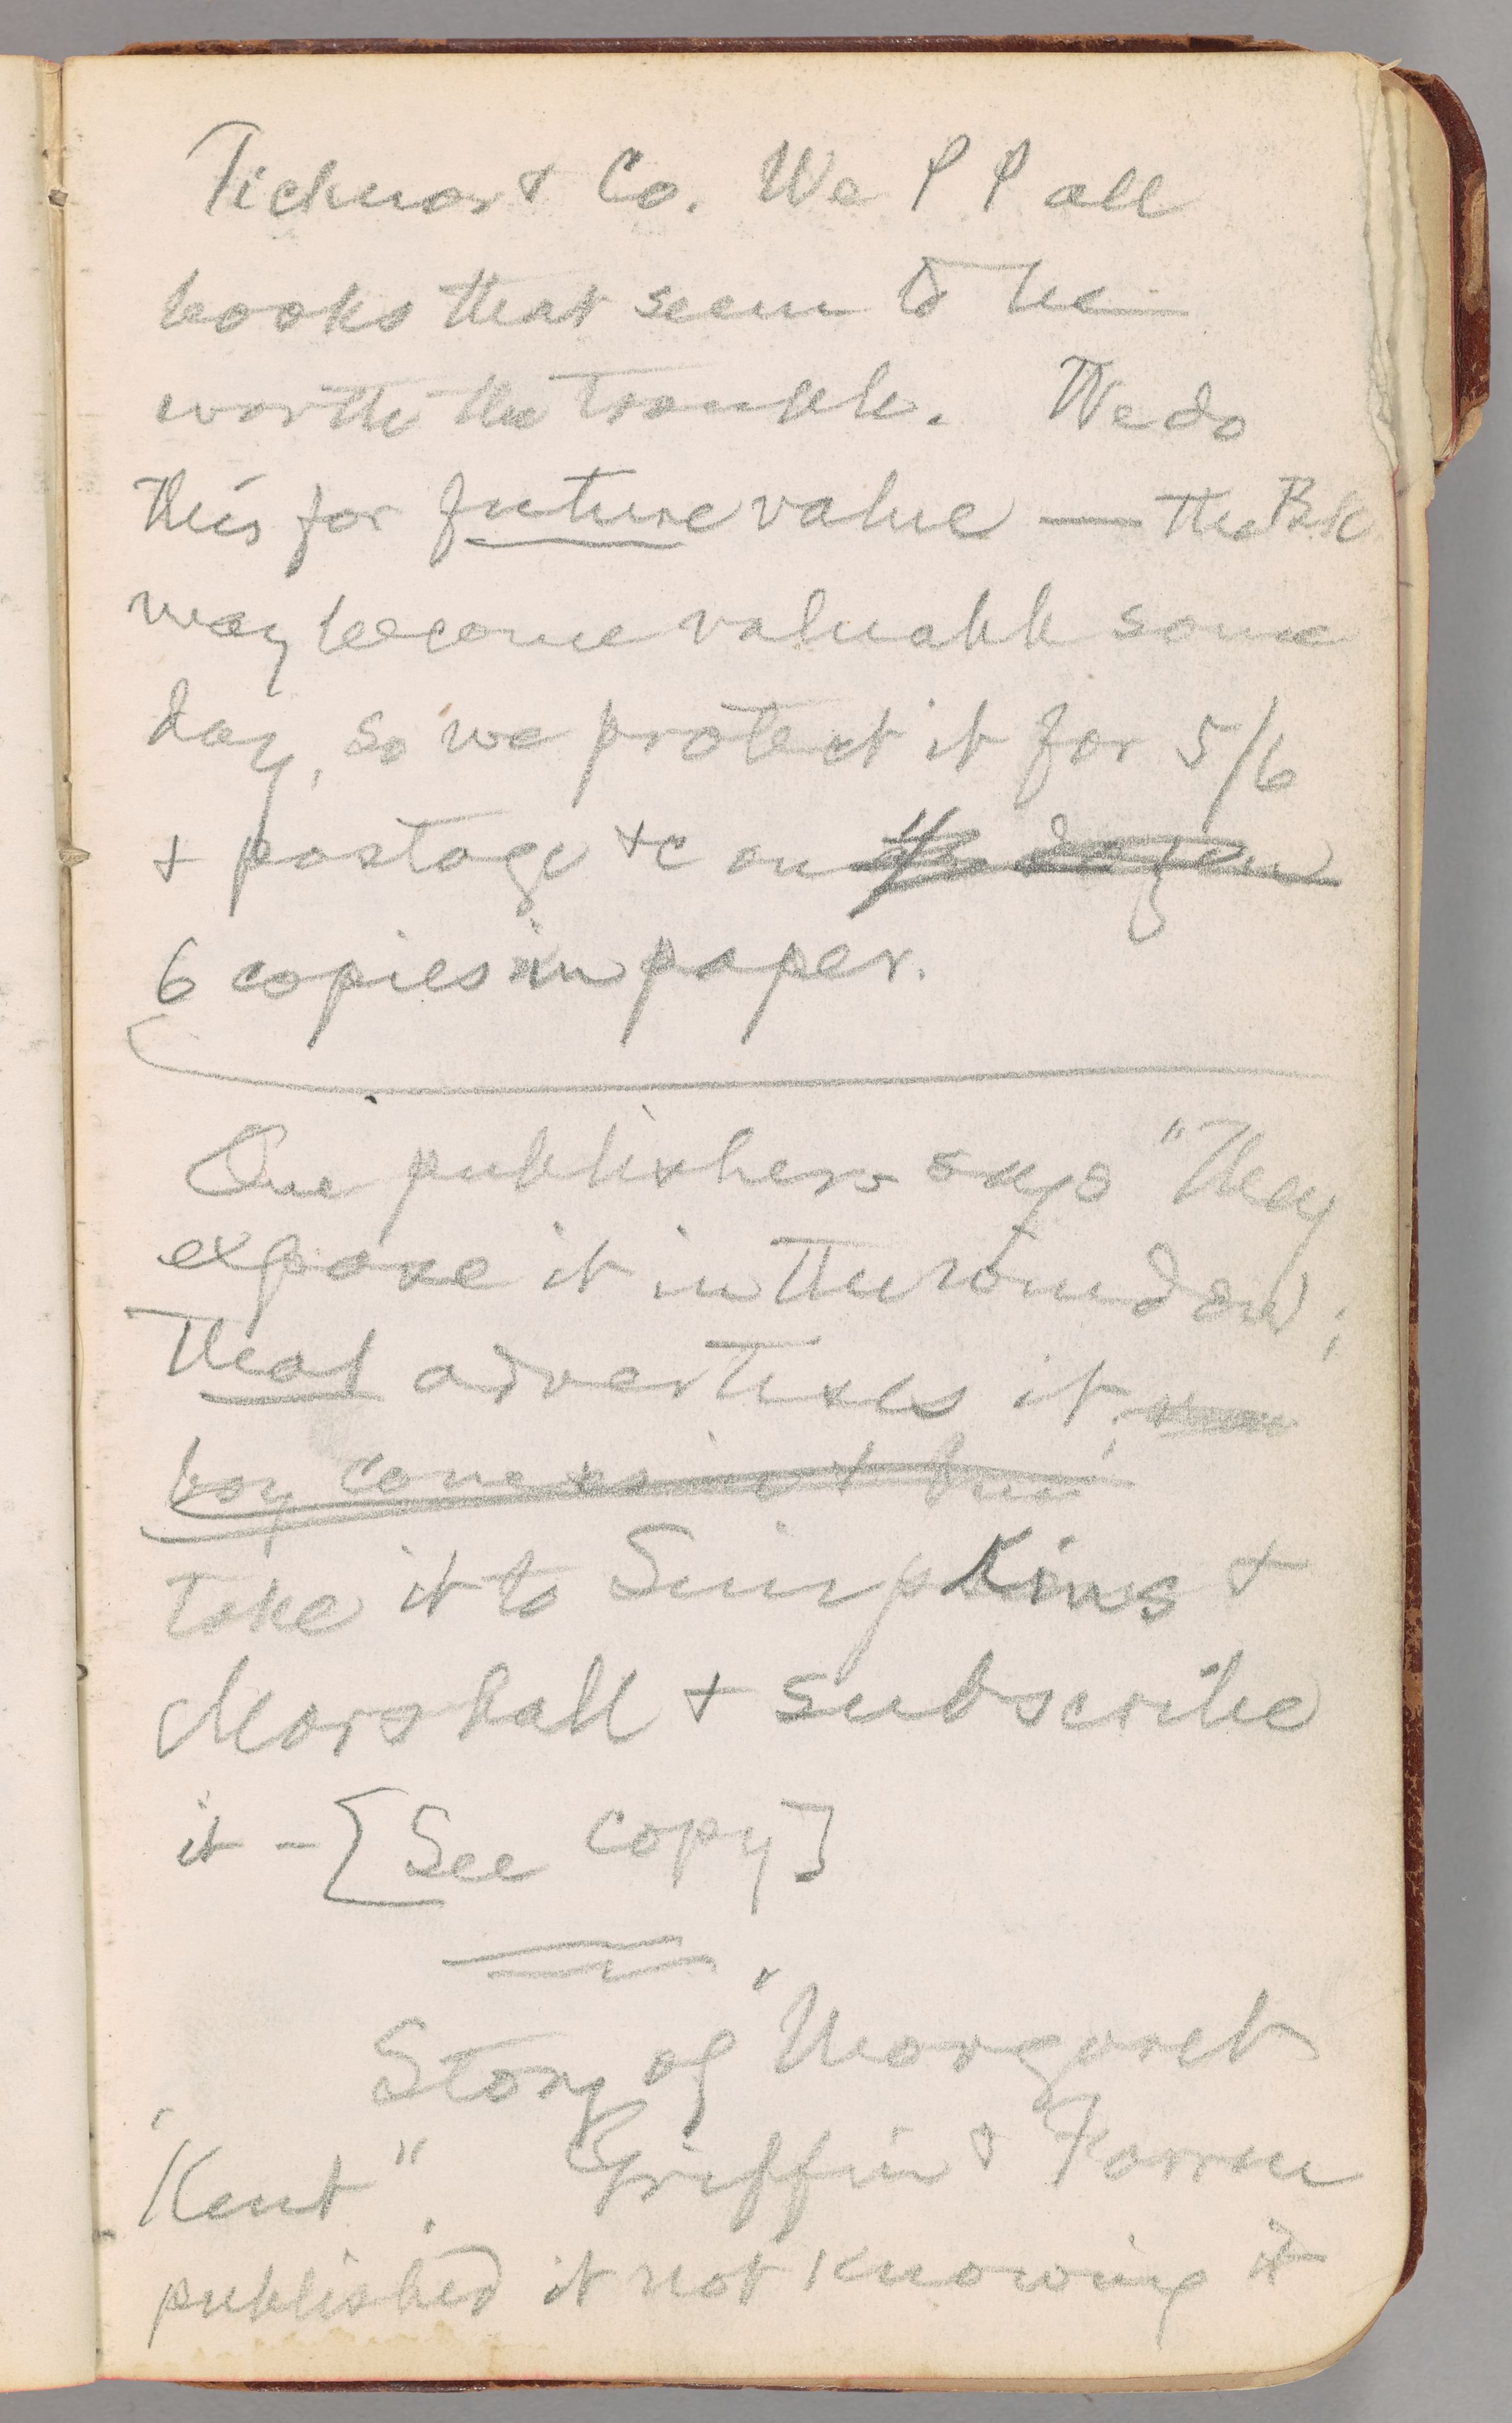 Ticknor & Co. We P P all
books that seem to be
worth the trouble. We do
this for future value — the Bk
may become valuable some
day, so we protect it for 5/6
& postage &c on a dozen
6 copies in paper.
One publishers says "They
expose it in the window;
that advertises it;
boy comes in & buys
take it to Simpkins &
Marshall & subscribe
it – [See copy]
Story of "Margaret
Kent". Griffin & Farren
published it not knowing it